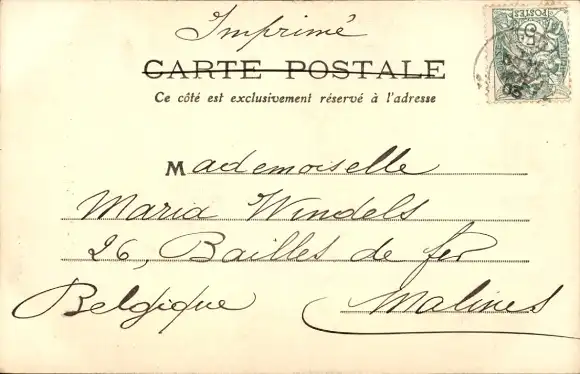 Imprimé
CARTE POSTALE
Ce côté est exclusivement réservé à l'adresse
Mademoiselle
Maria Windels
26, Bailles de fer
Belgique Malines
POSTES
5
03